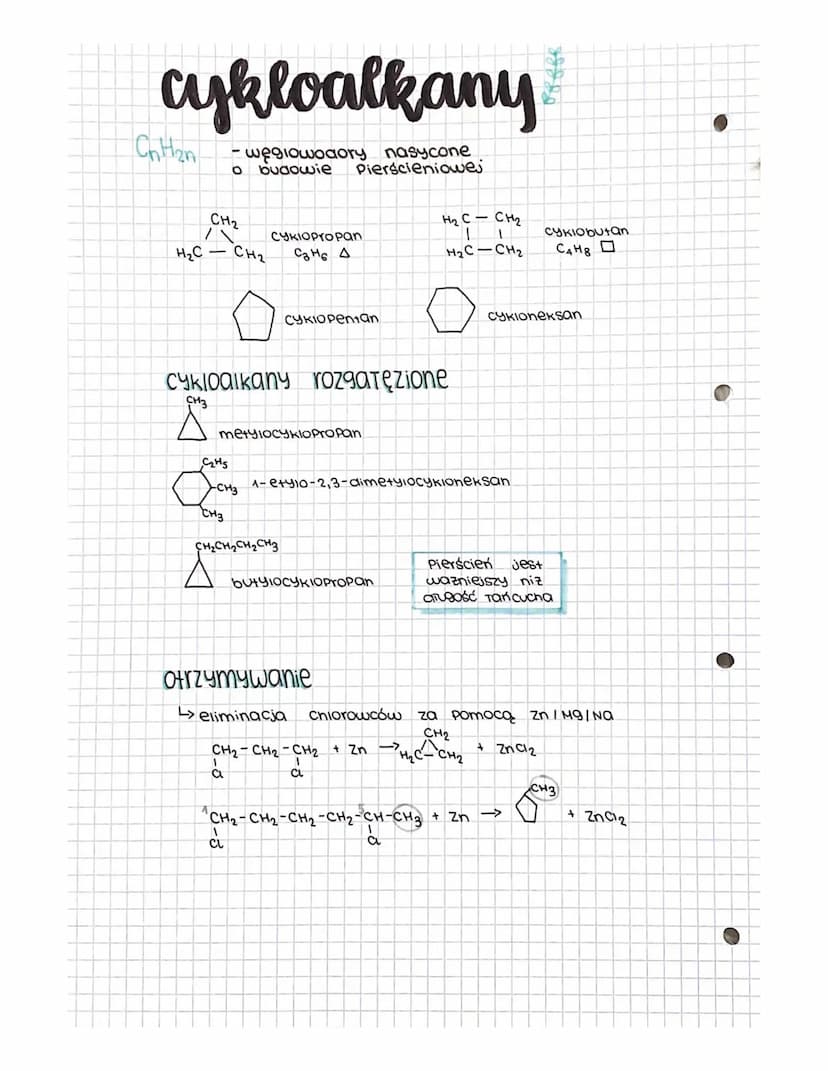 cykloalkany
CnH2n
- węglowodory nasycone
o budowie pierścieniowej
CH2
H2C — CH2
cyklopropan
C3H6 △
H2C — CH2
H2C — CH2
cyklobutan
C4H8 □
cyklopentan
cykloheksan
cykloalkany rozgałęzione
CH3
metylocyklopropan
C2H5
CH3
1-etylo-2,3-dimetylocykloheksan
CH3
CH2CH2CH2CH3
butylocyklopropan
Pierścień jest
ważniejszy niż
długość łańcucha
otrzymywanie
↳ eliminacja chlorowców za pomocą Zn/Mg/Na
CH2
CH2-CH2-CH2 + Zn → H2C-CH2 + ZnCl2
Cl Cl
CH3
1CH2-CH2-CH2-CH2-5CH-CH3 + Zn → + ZnCl2
Cl Cl